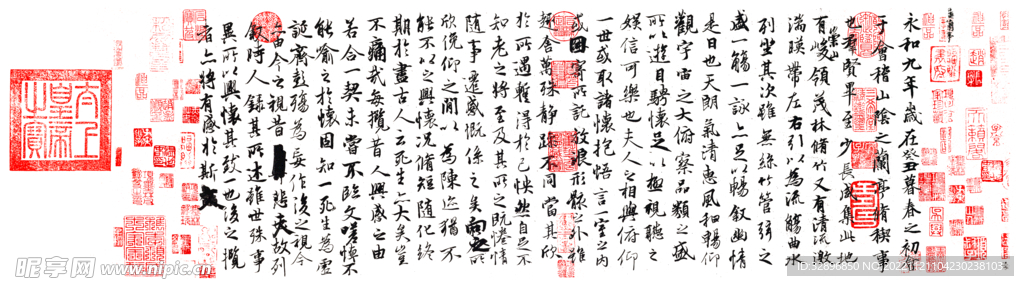 永和九年歲在癸丑暮春之初會
于會稽山陰之蘭亭脩稧事
也羣賢畢至少長咸集此地
有崇山峻領茂林脩竹又有清流激
湍暎帶左右引以為流觴曲水
列坐其次雖無絲竹管弦之
盛一觴一詠亦足以暢敘幽情
是日也天朗氣清惠風和暢仰
觀宇宙之大俯察品類之盛
所以遊目騁懷足以極視聽之
娛信可樂也夫人之相與俯仰
一世或取諸懷抱悟言一室之內
或因寄所託放浪形骸之外雖
趣舍萬殊靜躁不同當其欣
於所遇蹔得於己怏然自足不
知老之將至及其所之既惓情
隨事遷感慨係之矣向之所
欣俛仰之閒以為陳迹猶不
能不以之興懷況脩短隨化終
期於盡古人云死生亦大矣豈
不痛哉每攬昔人興感之由
若合一契未嘗不臨文嗟悼不
能喻之於懷固知一死生為虛
誕齊彭殤為妄作後之視今
亦由今之視昔悲夫故列
敘時人錄其所述雖世殊事
異所以興懷其致一也後之攬
者亦將有感於斯文
太上皇帝之寶
昵享网 www.nipic.cn
ID:32896850 NO:20221121104230238103